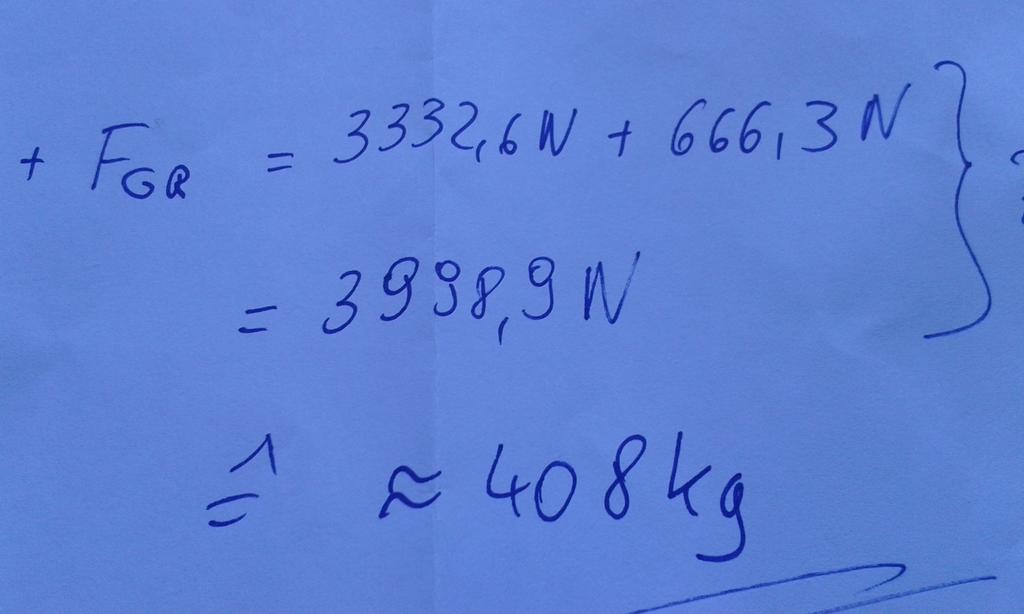 + F_GR = 3332,6 N + 666,3 N }
= 3998,9 N
≙ ≈ 408 kg